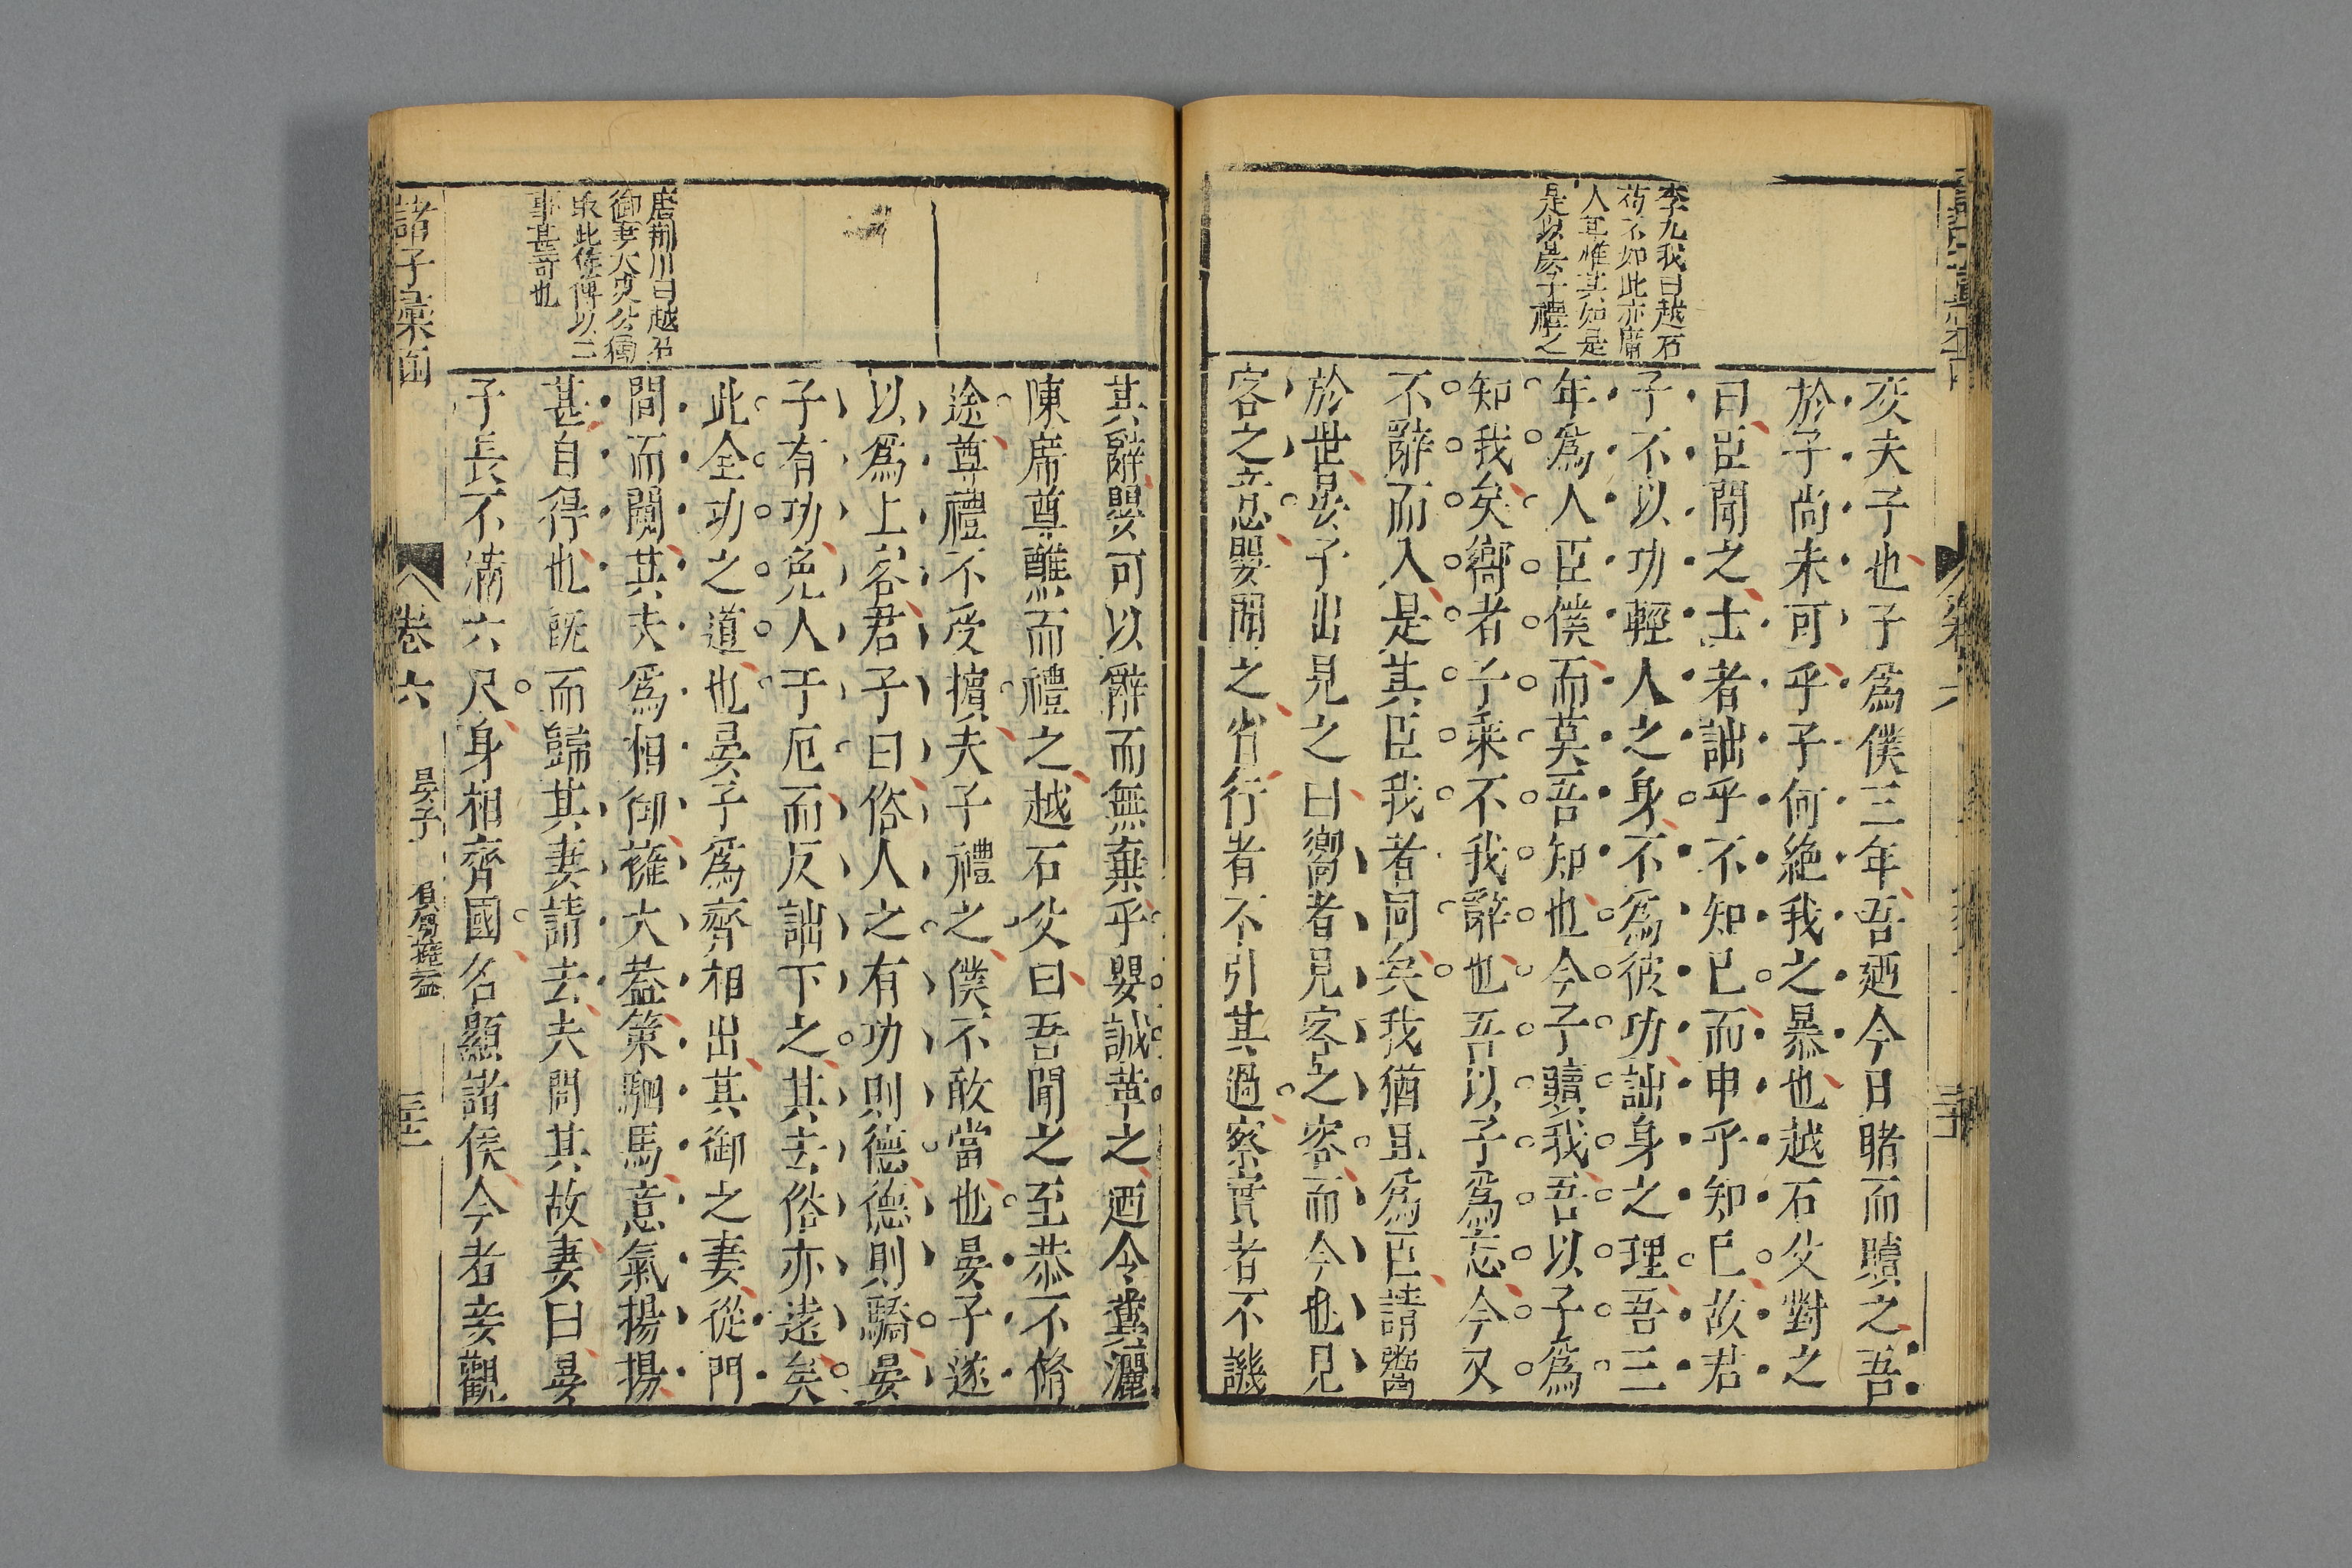 李九我曰越石
苟不如此亦庸
人耳惟其如是
是以晏子禮之
交夫子也子爲僕三年吾廼今日睹而贖之吾
於子尚未可乎子何絶我之暴也越石父對之
曰臣聞之士者詘乎不知已而申乎知已故君
子不以功輕人之身不爲彼功詘身之理吾三
年爲人臣僕而莫吾知也今子贖我吾以子爲
知我矣嚮者子乘不我辭也吾以子爲忘今又
不辭而入是其臣我者同矣我猶且爲臣請鬻
於世晏子出見之曰嚮者見客之容而今也見
客之意嬰聞之省行者不引其過察實者不譏
唐荆川曰越石
御妻太史公獨
取此作傳以二
事甚奇也
其辭嬰可以辭而無棄乎嬰誠革之廼令糞灑
陳席尊醮而禮之越石父曰吾聞之至恭不脩
途尊禮不受擯夫子禮之僕不敢當也晏子遂
以爲上客君子曰俗人之有功則德德則驕晏
子有功免人于厄而反詘下之其去俗亦遠矣
此全功之道也晏子爲齊相出其御之妻從門
間而闚其夫爲相御擁大葢策駟馬意氣揚揚
甚自得也旣而歸其妻請去夫問其故妻曰晏
子長不滿六尺身相齊國名顯諸侯今者妾觀
諸子彙函
卷六
晏子